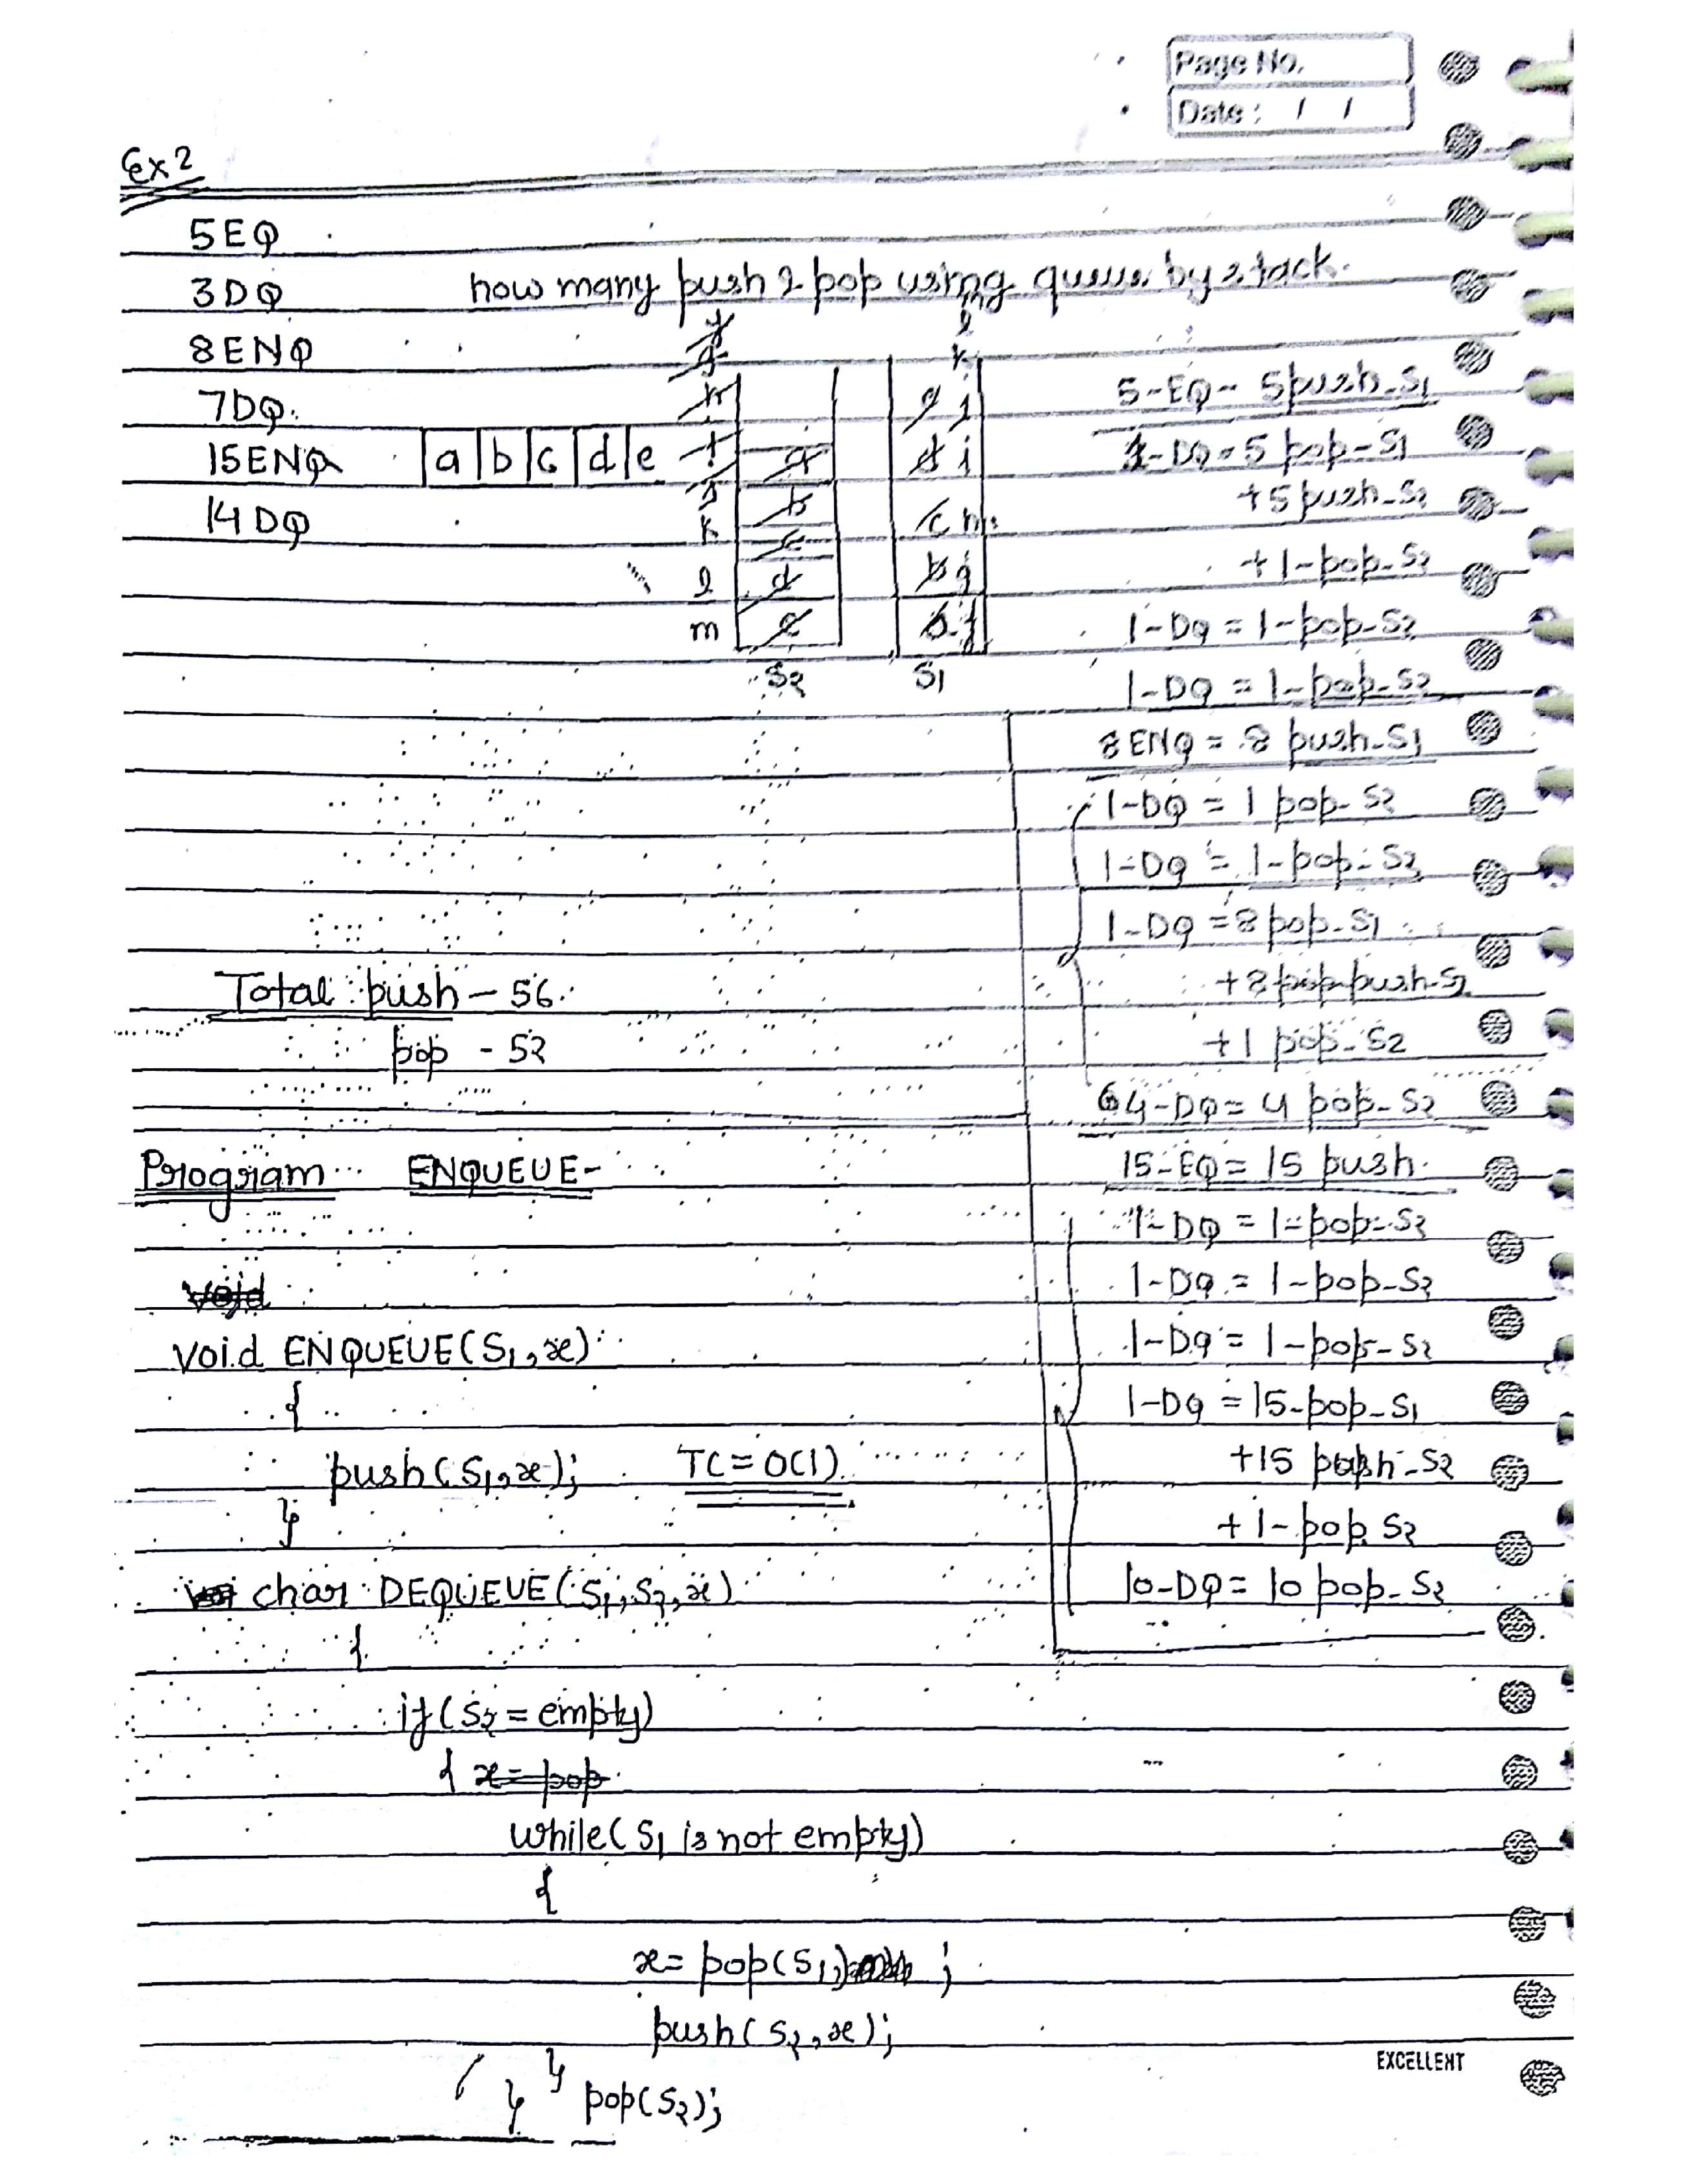 Page No.
Date : / /
Ex 2
5EQ
3DQ
how many push & pop using queue by stack.
8ENQ
7DQ.
15ENQ
14DQ
a b c d e
k
l
m
a
b
c
d
e
S2
S1
5-EQ- 5push-S1
1-DQ=5 pop-S1
+5push-S2
+1-pop-S2
1-DQ = 1-pop-S2
1-DQ = 1-pop-S2
8ENQ = 8 push-S1
1-DQ = 1 pop-S2
1-DQ = 1-pop-S2
1-DQ =8pop-S1
+8 push-S2
+1 pop-S2
4-DQ= 4 pop-S2
15-EQ= 15 push
1-DQ = 1-pop-S2
1-DQ = 1-pop-S2
1-DQ = 1-pop-S2
1-DQ =15-pop-S1
+15 push-S2
+1-pop S2
10-DQ= 10 pop-S2
Total push - 56
pop - 52
Program ENQUEUE-
void
void ENQUEUE(S1,x)
{
push(S1,x); TC=O(1)
}
char DEQUEUE(S1,S2,x)
{
if(S2=empty)
{ x=pop
while(S1 is not empty)
{
x= pop(S1) ;
push(S2,x);
}
} pop(S2);
EXCELLENT